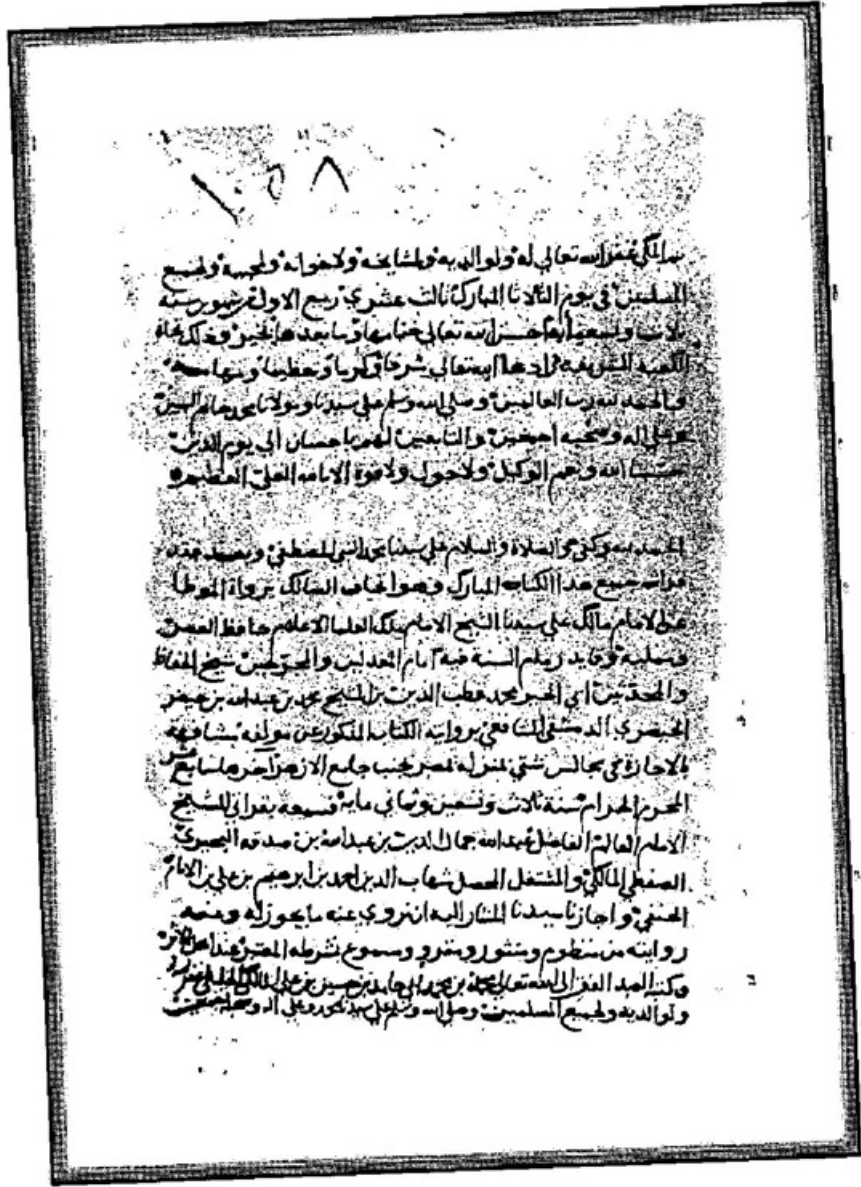 ١٥٨
المكي غفر الله تعالى له ولوالديه ولمشايخه ولاخوانه ولمحبيه ولجميع
المسلمين في يوم الثلاثا المبارك ثالث عشري ربيع الاول من شهور سنة
ثلاث وتسعين احسن الله تعالى ختامها وما بعدها بخير وذلك تجاه
الكعبة الشريفة زادها الله تعالى شرفا وتكريما وتعظيما ومهابة
والحمد لله رب العالمين وصلى الله وسلم على سيدنا ومولانا محمد خاتم النبيين
وعلى اله وصحبه اجمعين والتابعين لهم باحسان الى يوم الدين
حسبنا الله ونعم الوكيل ولا حول ولا قوة الا بالله العلي العظيم
الحمد لله وكفى والصلاة والسلام على سيدنا محمد النبي المصطفى وبعد فقد
قرات جميع هذا الكتاب المبارك وهو اتحاف السالك برواة الموطا
عن الامام مالك على سيدنا الشيخ الامام ملك العلما الاعلام حافظ العصر
وقايد زمام السنة فيه امام المعدلين والمجرحين شيخ الحفاظ
والمحدثين ابي الخير محمد قطب الدين بن الشيخ محمد بن عبد الله بن خيضر
الخيضري الدمشقي الشافعي بروايته الكتاب المذكور عن مولفه مشافهة
بالاجازة في مجالس شتى بمنزله بمصر بجنب جامع الازهر اخرها سابع عشر
المحرم الحرام سنة ثلاث وتسعين وثماني ماية فسمعه بقراتي الشيخ
الامام العالم الفاضل عبد الله جمال الدين بن عبد الله بن صدقة البحيري
المالكي والمشتغل المحصل شهاب الدين احمد بن ابرهيم بن علي بن الامام
الحنفي واجازنا سيدنا المشار اليه ان نروي عنه ما يجوز له وعنه
روايته من منظوم ومنثور ومقرو ومسموع بشرطه المعتبر عند اهل الاثر
وكتبه العبد الفقير الى الله تعالى بن محمد بن حسين بن علي المالكي غفر له
ولوالديه ولجميع المسلمين وصلى الله وسلم على سيدنا محمد وعلى اله وصحبه اجمعين